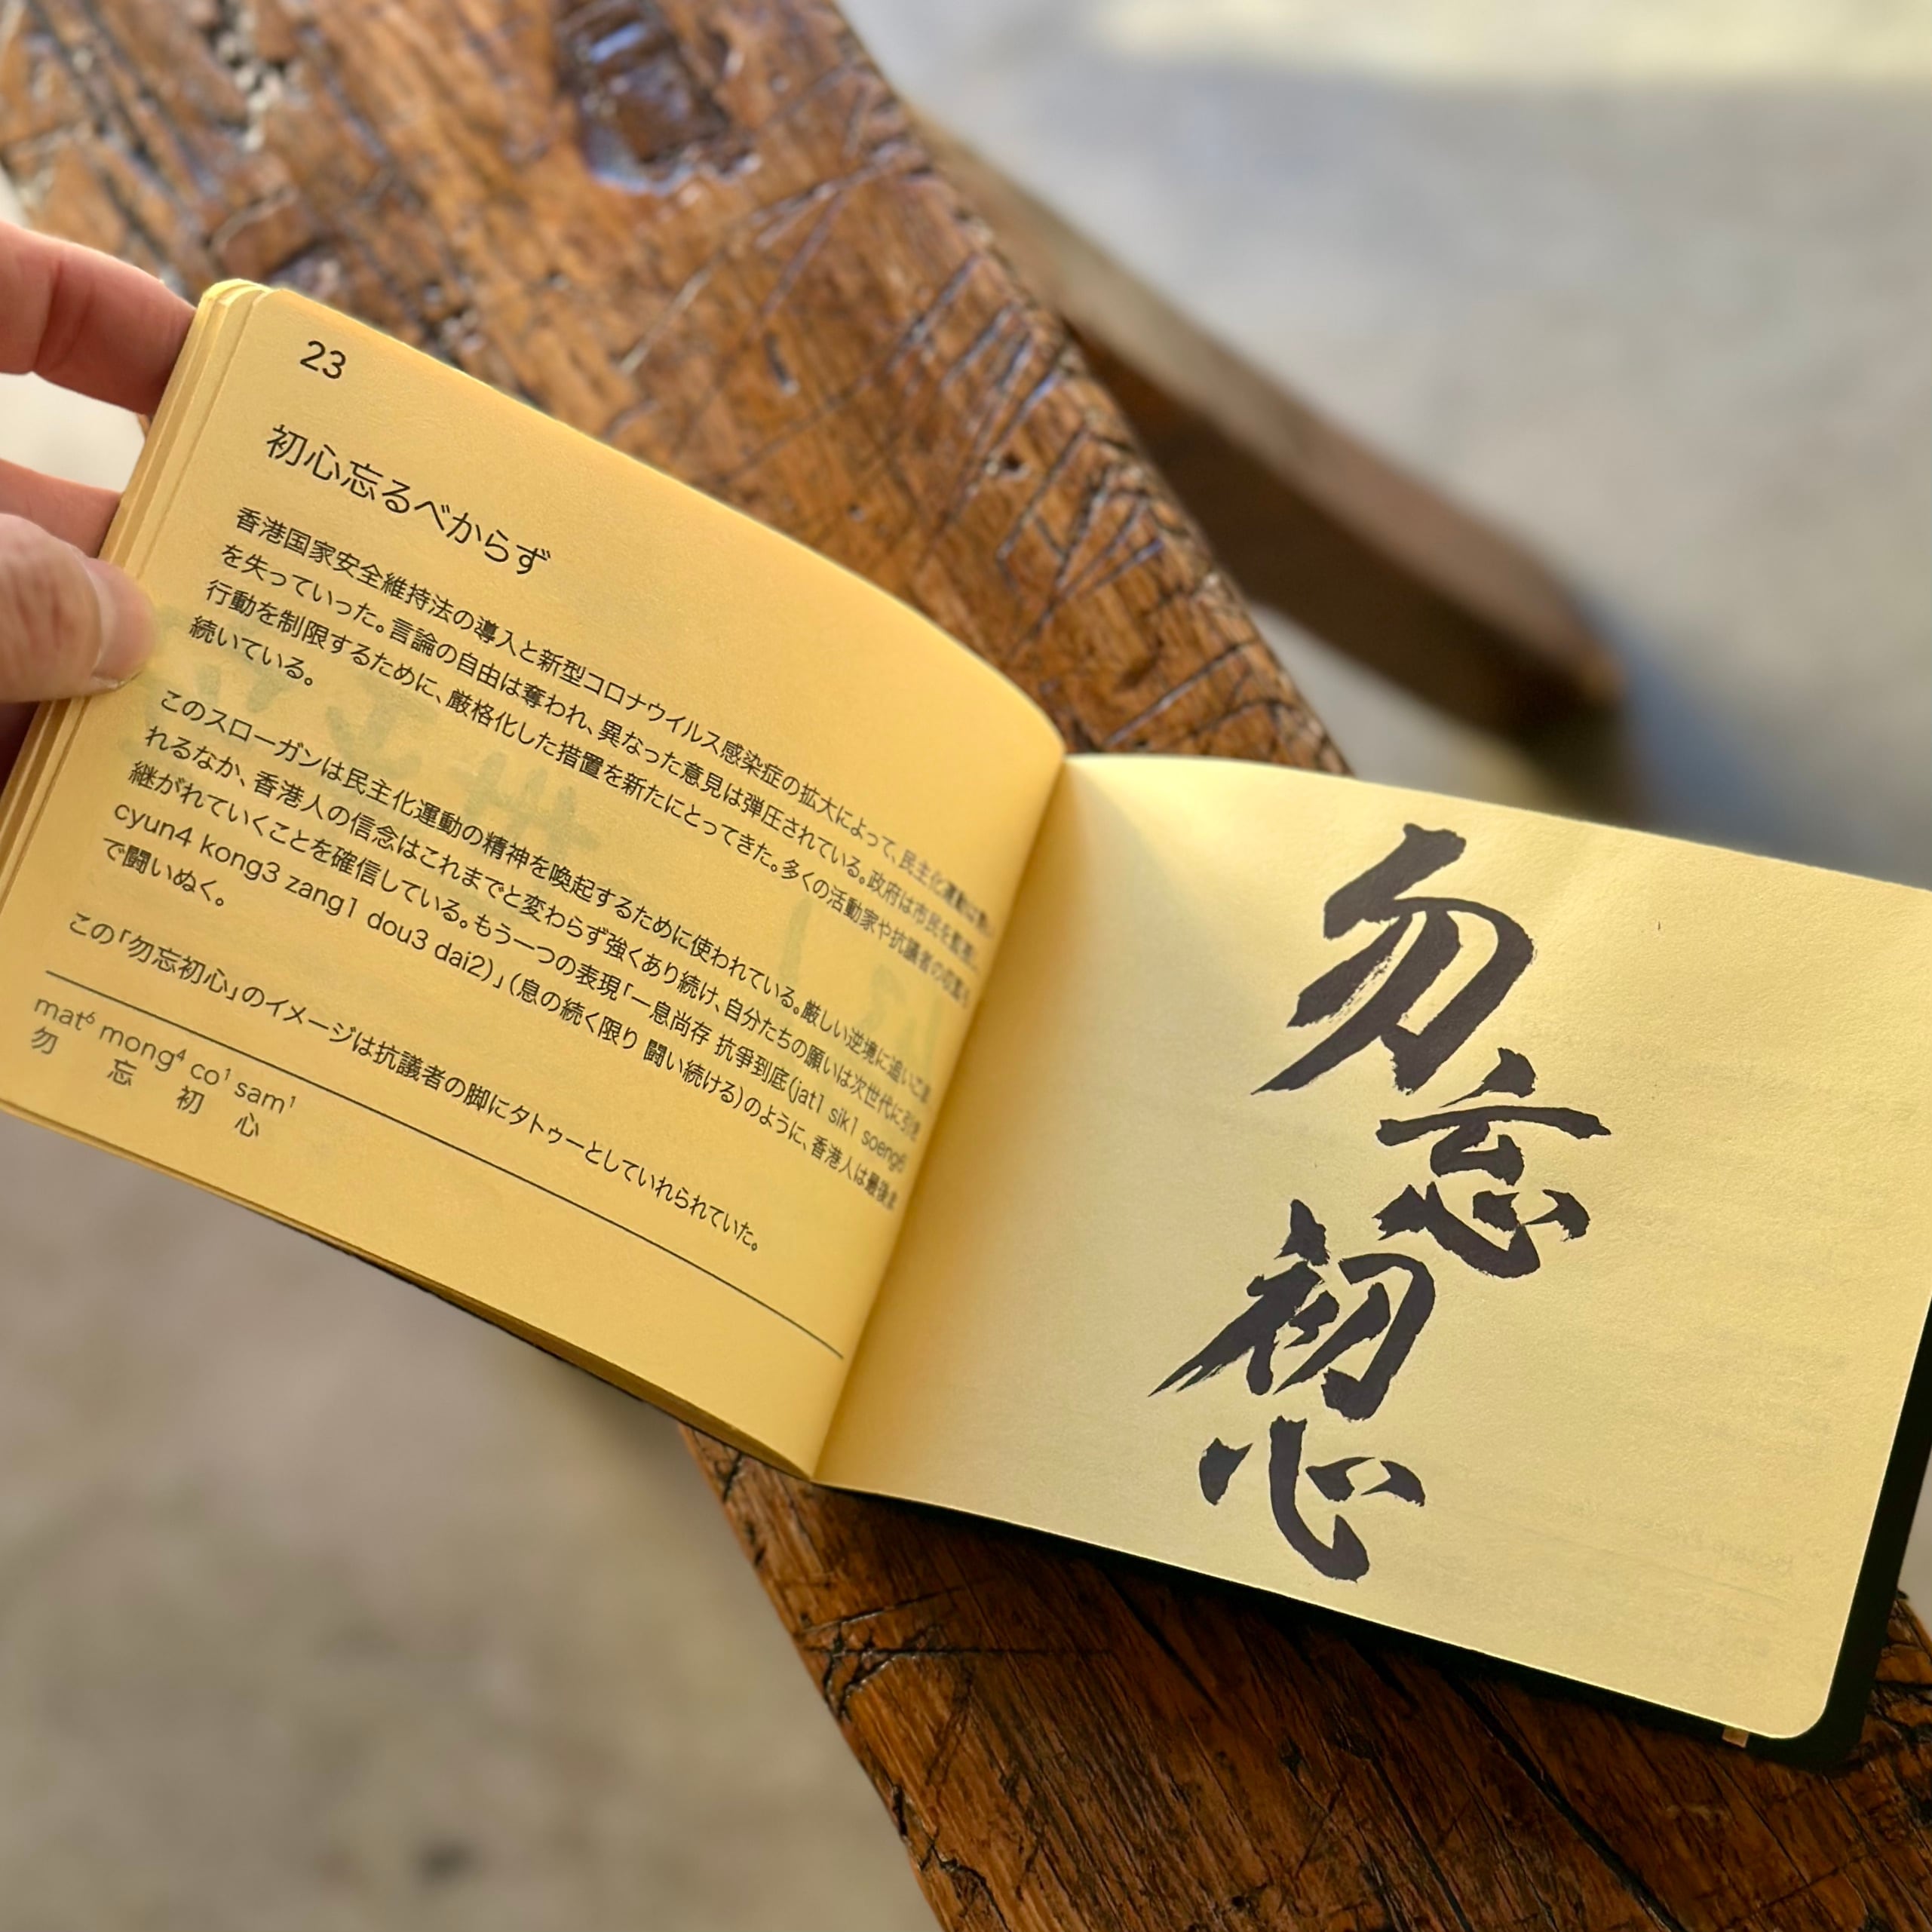 23
初心忘るべからず
香港国家安全維持法の導入と新型コロナウイルス感染症の拡大によって、民主化運動は
を失っていった。言論の自由は奪われ、異なった意見は弾圧されている。政府は市民を監視し、
行動を制限するために、厳格化した措置を新たにとってきた。多くの活動家や抗議者の収監も
続いている。
このスローガンは民主化運動の精神を喚起するために使われている。厳しい逆境に追いこま
れるなか、香港人の信念はこれまでと変わらず強くあり続け、自分たちの願いは次世代に引き
継がれていくことを確信している。もう一つの表現「一息尚存 抗爭到底(jat1 sik1 soeng6
cyun4 kong3 zang1 dou3 dai2)」(息の続く限り 闘い続ける)のように、香港人は最後ま
で闘いぬく。
この「勿忘初心」のイメージは抗議者の脚にタトゥーとしていれられていた。
mat⁶ mong⁴ co¹ sam¹
勿 忘 初 心
勿
忘
初
心